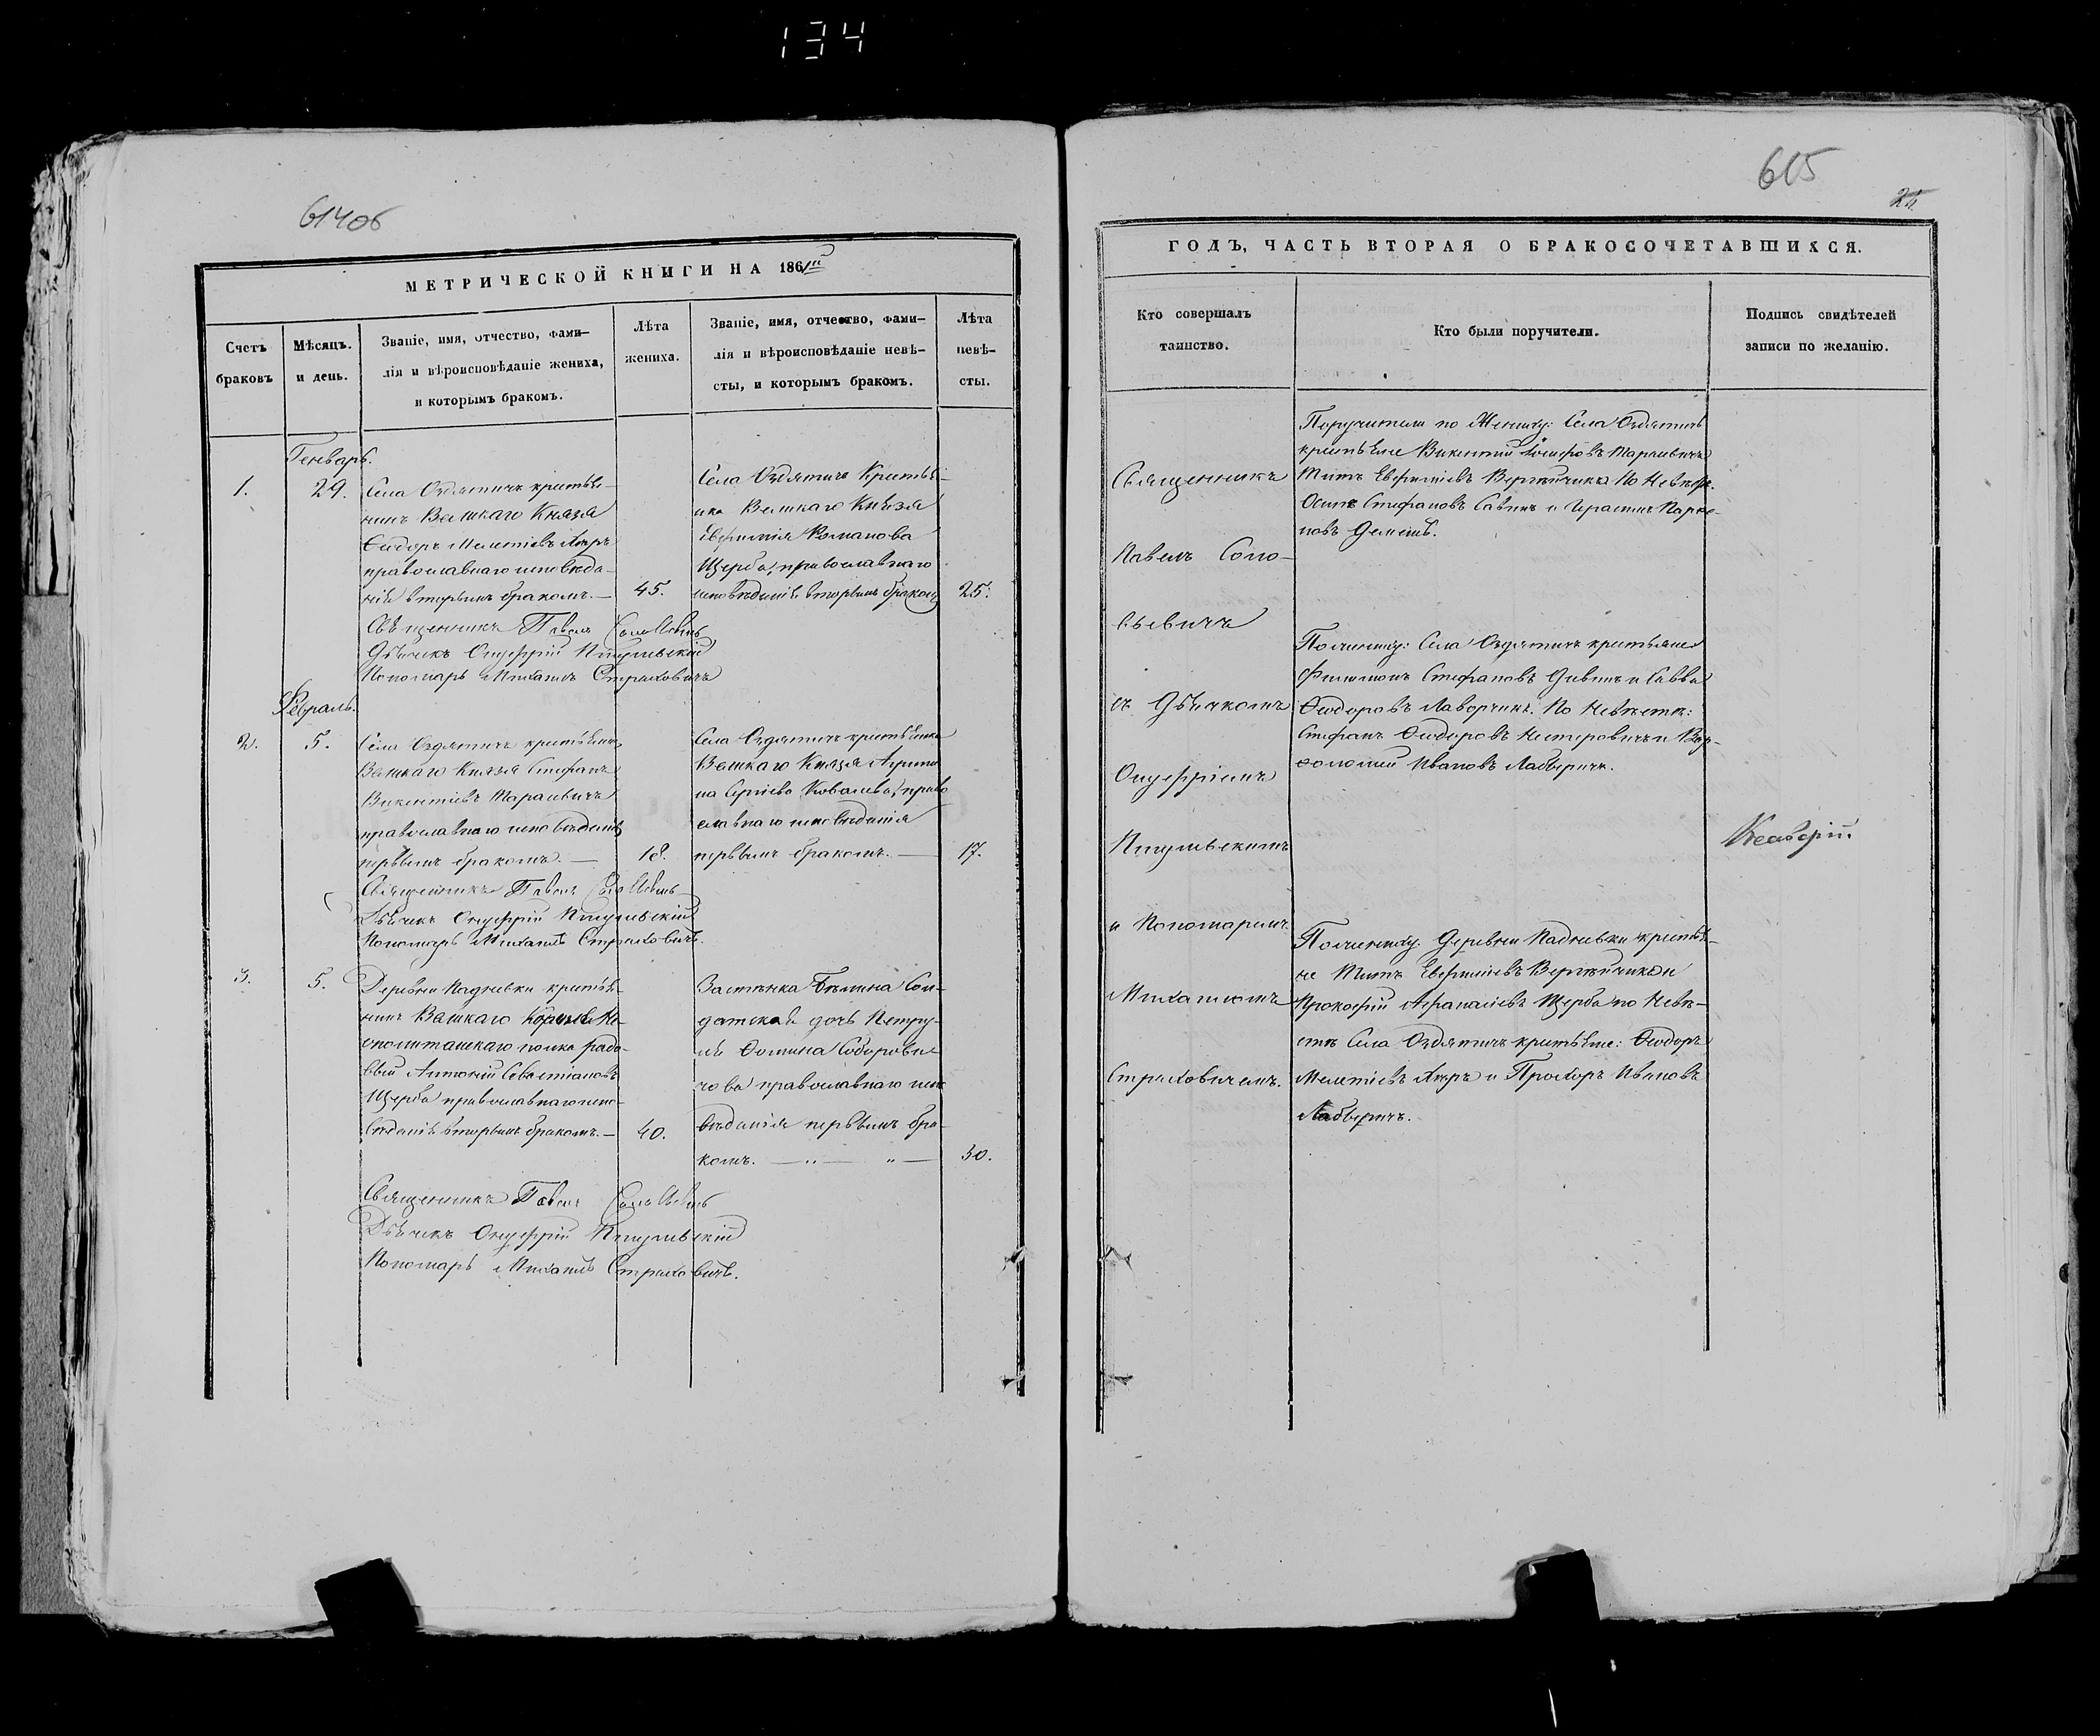 134
614об
МЕТРИЧЕСКОЙ КНИГИ НА 1861й
Счетъ браковъ
Мѣсяцъ. и день.
Званіе, имя, отчество, фами-
лія и вѣроисповѣданіе жениха,
и которымъ бракомъ.
Лѣта
жениха.
Званіе, имя, отчество, фами-
лія и вѣроисповѣданіе невѣ-
сты, и которымъ бракомъ.
Лѣта
невѣ-
сты.
Генварь.
1.
29.
Села Оздятичъ крестья-
нинъ Великаго Князя
Ѳиодоръ Мелетіевъ
православнаго исповѣда-
нія вторымъ бракомъ. —
45.
Села Оздятичъ Крестьян-
ика Великаго Князя
Евфимія Романова
Щерба, православнаго
исповѣданія вторымъ бракомъ
25.
Священникъ Павелъ Соловьевичъ
Дьячекъ Онуфрій Пигулевскій
Пономарь Михаилъ Страховичъ
Февраль.
2.
5.
Села Оздятичъ крестьянинъ
Великаго Князя Стефанъ
Викентіевъ Тарасевичъ
православнаго исповѣданія
первымъ бракомъ. —
18.
Села Оздятичъ крестьянка
Великаго Князя
на Сергіева Ковалева, право
славнаго исповѣданія
первымъ бракомъ. —
17.
Священникъ Павелъ Соловьевичъ
Дьячекъ Онуфрій Пигулевскій
Пономарь Михаилъ Страховичъ.
3.
5.
Деревни Падневки крестья-
нинъ Великаго Не-
аполитанскаго полка рядо-
вый Антоній Севастіановъ
Щерба православнаго испо-
вѣданія вторымъ бракомъ. —
40.
Застѣнка Сол-
датская дочь Петру-
Ѳомина
чова православнаго испо
вѣданія первымъ бра-
комъ. — „ — „ —
30.
Священникъ Павелъ Соловьевичъ
Дьячекъ Онуфрій Пигулевскій
Пономарь Михаилъ Страховичъ.
615
ГОДЪ, ЧАСТЬ ВТОРАЯ О БРАКОСОЧЕТАВШИХСЯ.
Кто совершалъ
таинство.
Кто были поручители.
Подпись свидѣтелей
записи по желанію.
Священникъ
Павелъ Соло-
вьевичъ
съ Дьячкомъ
Онуфріемъ
Пигулевскимъ
и Пономаремъ
Михаиломъ
Страховичемъ.
Поручители по Жениху: Села Оздятичъ
крестьяне Викентій Іосифовъ Тарасевичъ
Титъ Евфиміевъ По Невѣстѣ.
Осипъ Стефановъ Савинъ и Герасимъ Парѳе-
новъ
По жениху: Села Оздятичъ крестьяне
Филимонъ Стефановъ и Савва
Ѳиодоровъ По Невѣстѣ:
Стефанъ Ѳиодоровъ Нестеровичъ и Вар-
ѳоломей Ивановъ
По жениху Деревни Падневки крестья-
не Титъ Евфиміевъ и
Прокофій Афанасіевъ Щерба по Невѣ-
стѣ Села Оздятичъ крестьяне: Ѳиодоръ
Мелетіевъ и Прохоръ Ивановъ